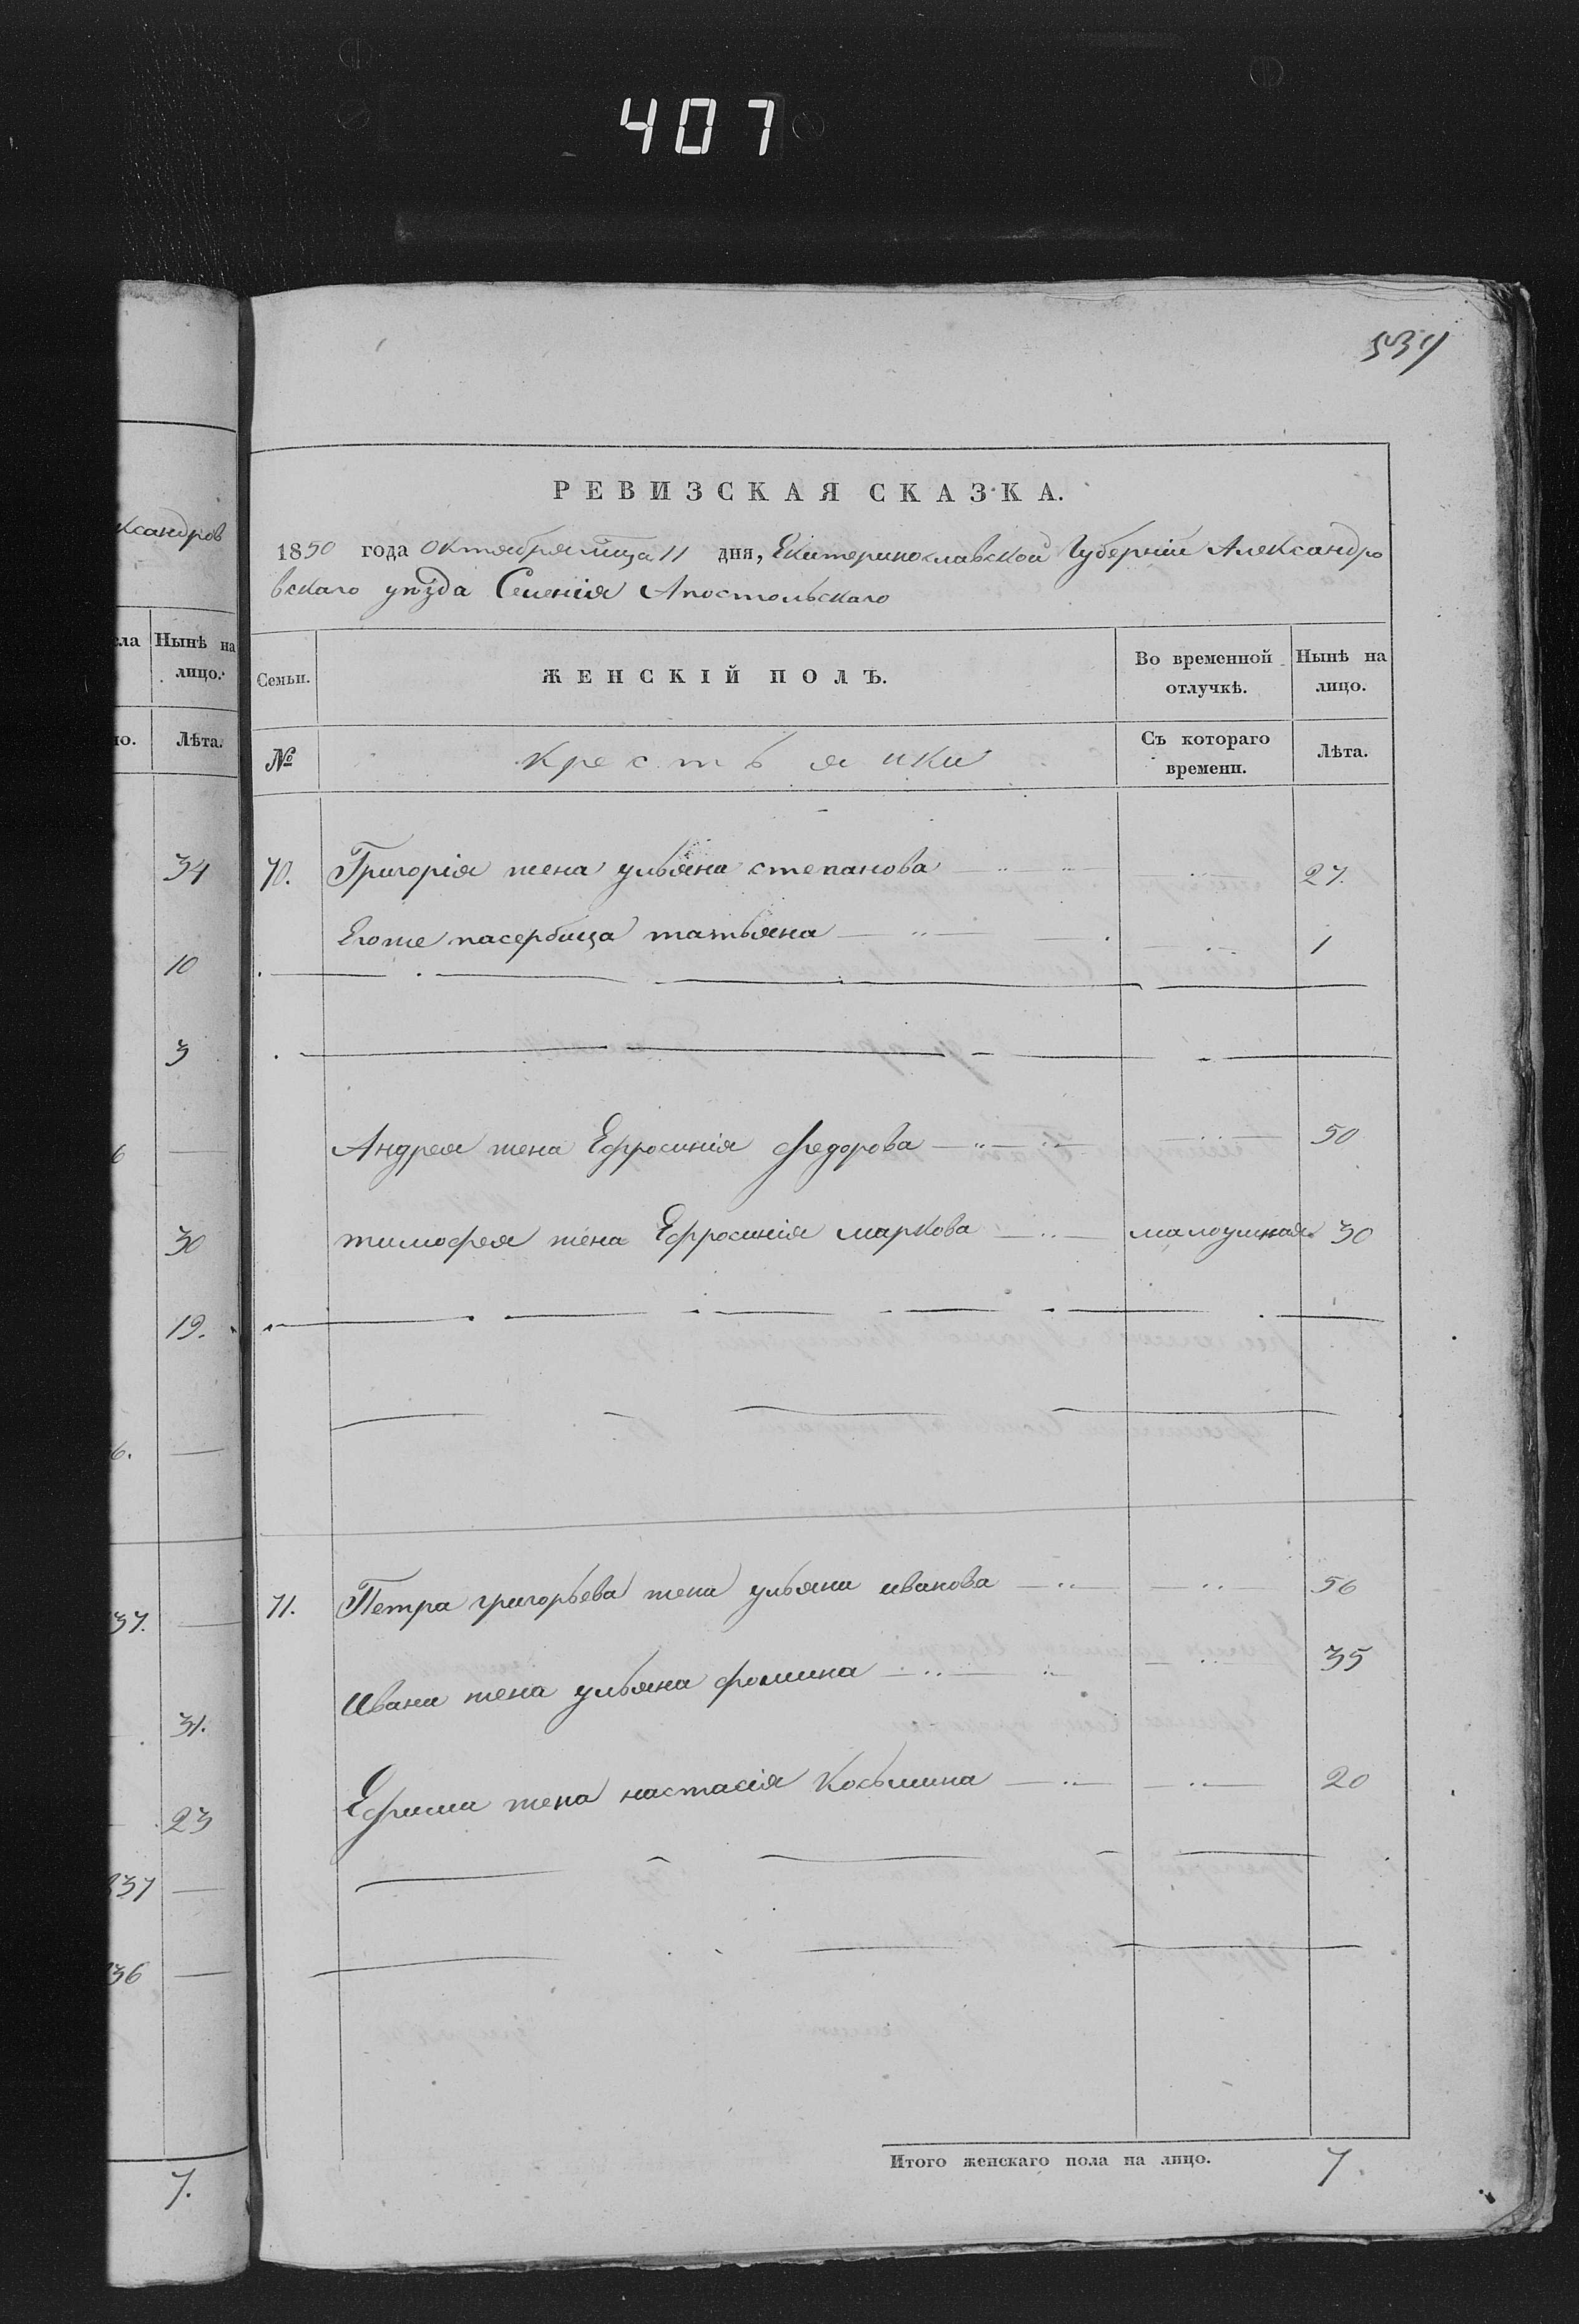 407
534
РЕВИЗСКАЯ СКАЗКА.
1850 года Октября мца 11 дня, Екатеринославской Губерніи Александро
вскаго уѣзда Селенія Апостольскаго
Семьи. ЖЕНСКІЙ ПОЛЪ. Во временной отлучкѣ. Нынѣ на лицо.
№ Крестьянки Съ котораго времени. Лѣта.
70. Григорія жена ульяна степанова 27.
Егоже пасербица татьяна 1
Андрея жена Ефросинія федорова 50
тимофея жена Ефросинія маркова малоумная 30
71. Петра григорьева жена ульяна иванова 56
Ивана жена ульяна фомина 35
Ефима жена настасія Косьмина 20
Итого женскаго пола на лицо. 7.
ксандров
сла Нынѣ на лицо.
но. Лѣта.
34
10
3
6
30
19.
6.
37.
31.
23
837
836
7.